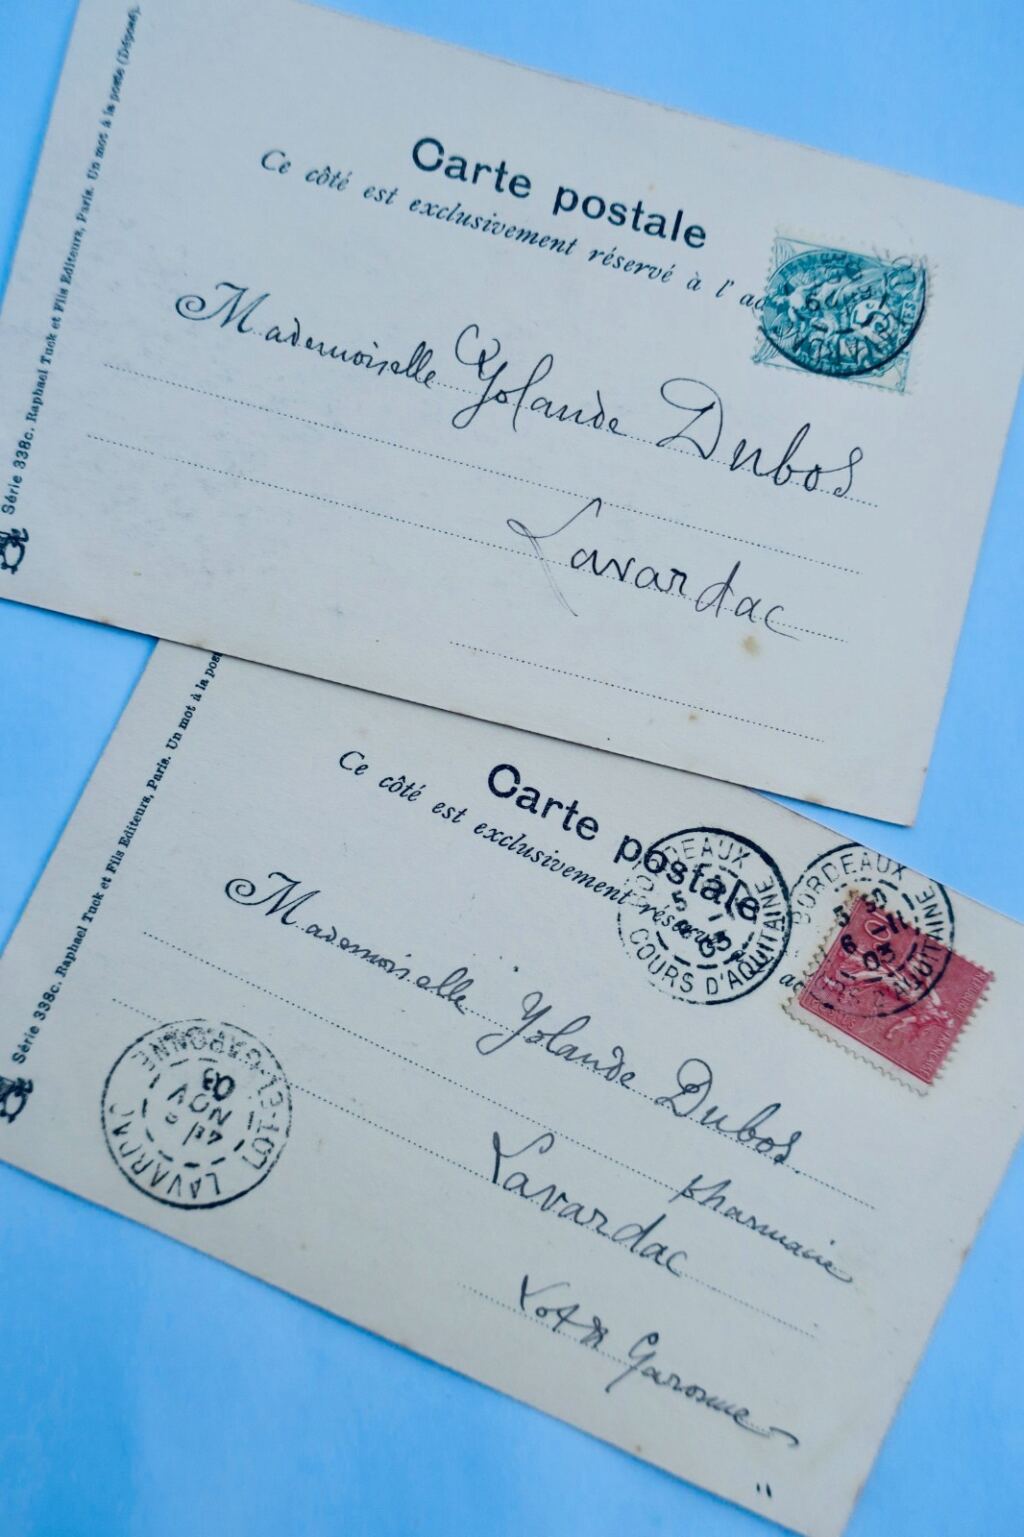 Série 338c. Raphael Tuck et Fils Editeurs, Paris. Un mot à la poste (Déposé)
Carte postale
Ce côté est exclusivement réservé à l'
Mademoiselle Yolande Dubos
Lavardac
Série 338c. Raphael Tuck et Fils Editeurs, Paris. Un mot à la
Carte postale
Ce côté est exclusivement
BORDEAUX
COURS D'AQUITAINE
5
03
BORDEAUX
6
03
AQUITAINE
10
Mademoiselle Yolande Dubos
Pharmacie
Lavardac
Lot & Garonne
LAVARDAC
LOT-ET-GARONNE
NOV
03